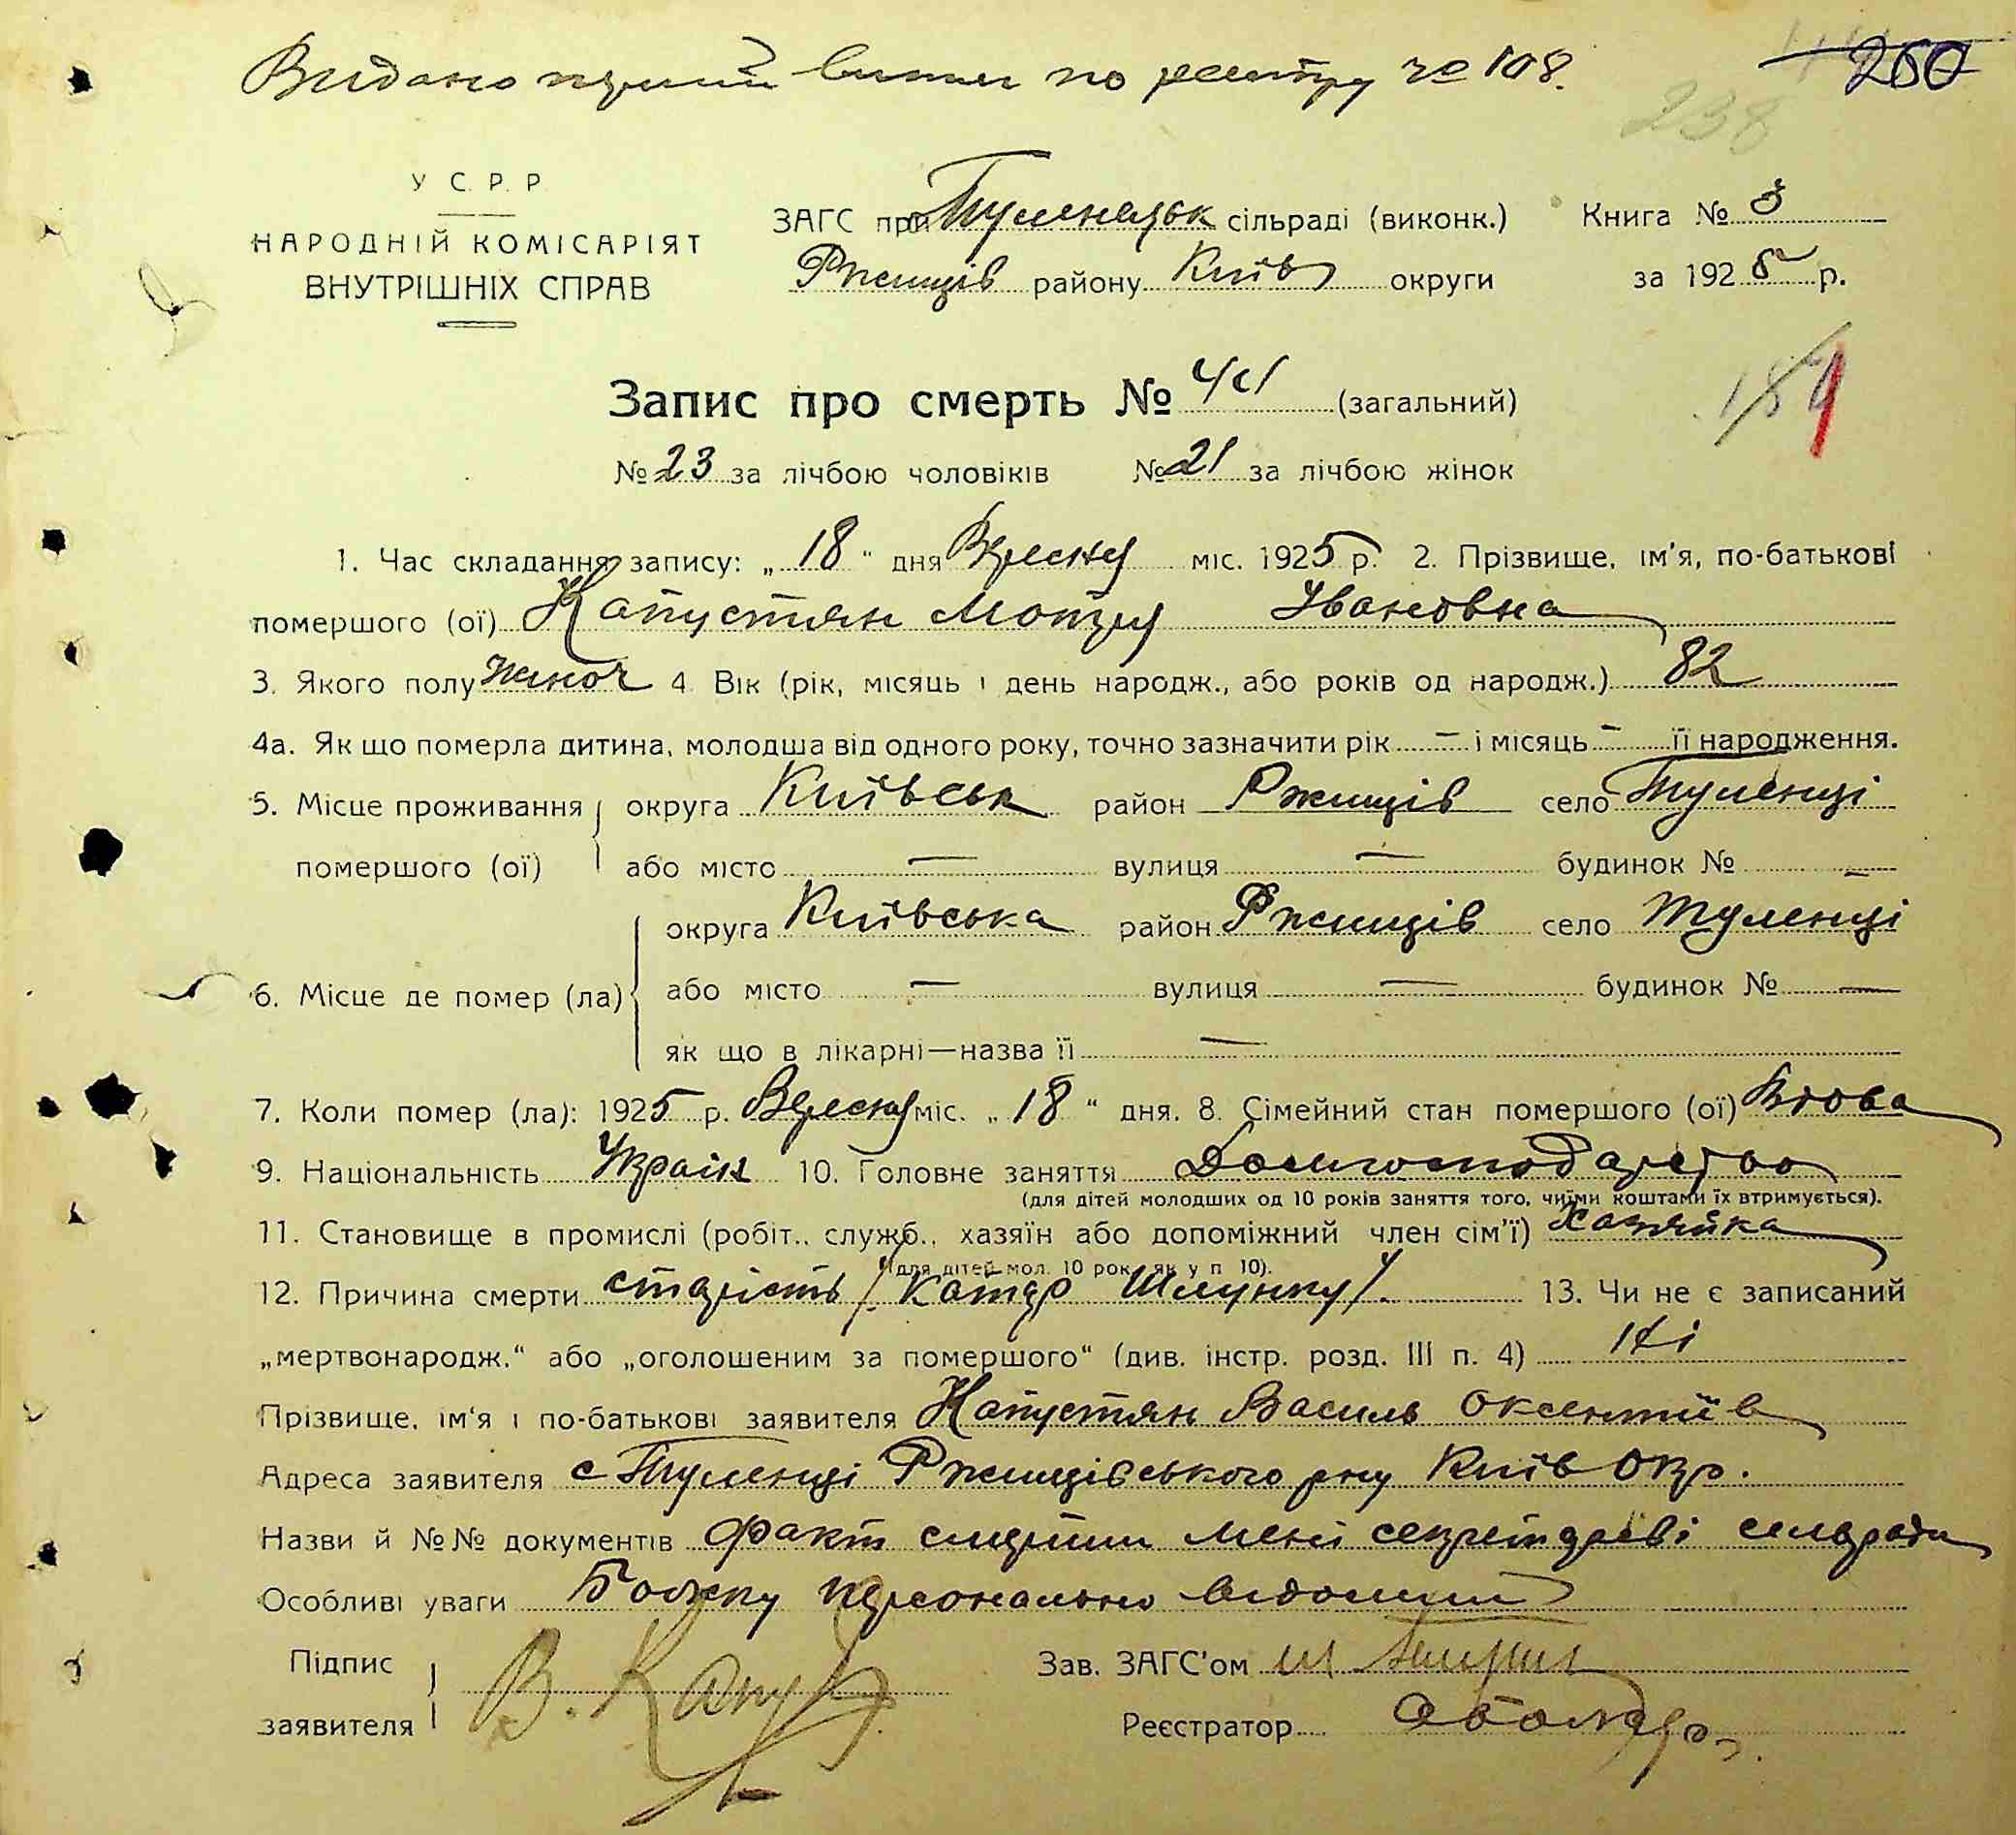 Видано перший витяг по реєстру № 108.
260
238
У С. Р. Р
НАРОДНІЙ КОМІСАРІЯТ
ВНУТРІШНІХ СПРАВ
ЗАГС при Туленецьк сільраді (виконк.) Книга № 3
Ржищів району Київ округи за 1925 р.
Запис про смерть № 44 (загальний)
184
№ 23 за лічбою чоловіків № 21 за лічбою жінок
1. Час складання запису: „ 18 “ дня Вересня міс. 1925 р. 2. Прізвище, ім'я, по-батькові
помершого (ої) Капустян Мотря Івановна
3. Якого полу жіноч 4 Вік (рік, місяць і день народж., або років од народж.) 82
4а. Як що померла дитина, молодша від одного року, точно зазначити рік — і місяць — її народження.
5. Місце проживання округа Київськ район Ржищів село Туленці
помершого (ої) або місто — вулиця — будинок № —
округа Київська район Ржищів село Туленці
6. Місце де помер (ла) або місто — вулиця — будинок № —
як що в лікарні—назва її —
7. Коли помер (ла): 1925 р. Вересня міс. „ 18 “ дня. 8. Сімейний стан помершого (ої) Вдова
9. Національність Україн 10. Головне заняття Домогосподарство
(для дітей молодших од 10 років заняття того, чиїми коштами їх втримується).
11. Становище в промислі (робіт., служб., хазяїн або допоміжний член сім'ї) Хазяйка
(для дітей мол. 10 рок. як у п 10).
12. Причина смерти старість /катар шлунку/. 13. Чи не є записаний
„мертвонародж.“ або „оголошеним за помершого“ (див. інстр. розд. III п. 4) Ні
Прізвище, ім'я і по-батькові заявителя Капустян Василь Оксентіїв
Адреса заявителя с Туленці Ржищівського рну Київ Окр.
Назви й №№ документів факт смерти мені секретареві сельради
Особливі уваги Божку персонально відомий
Підпис
заявителя В. Капу
Зав. ЗАГС'ом
Реєстратор